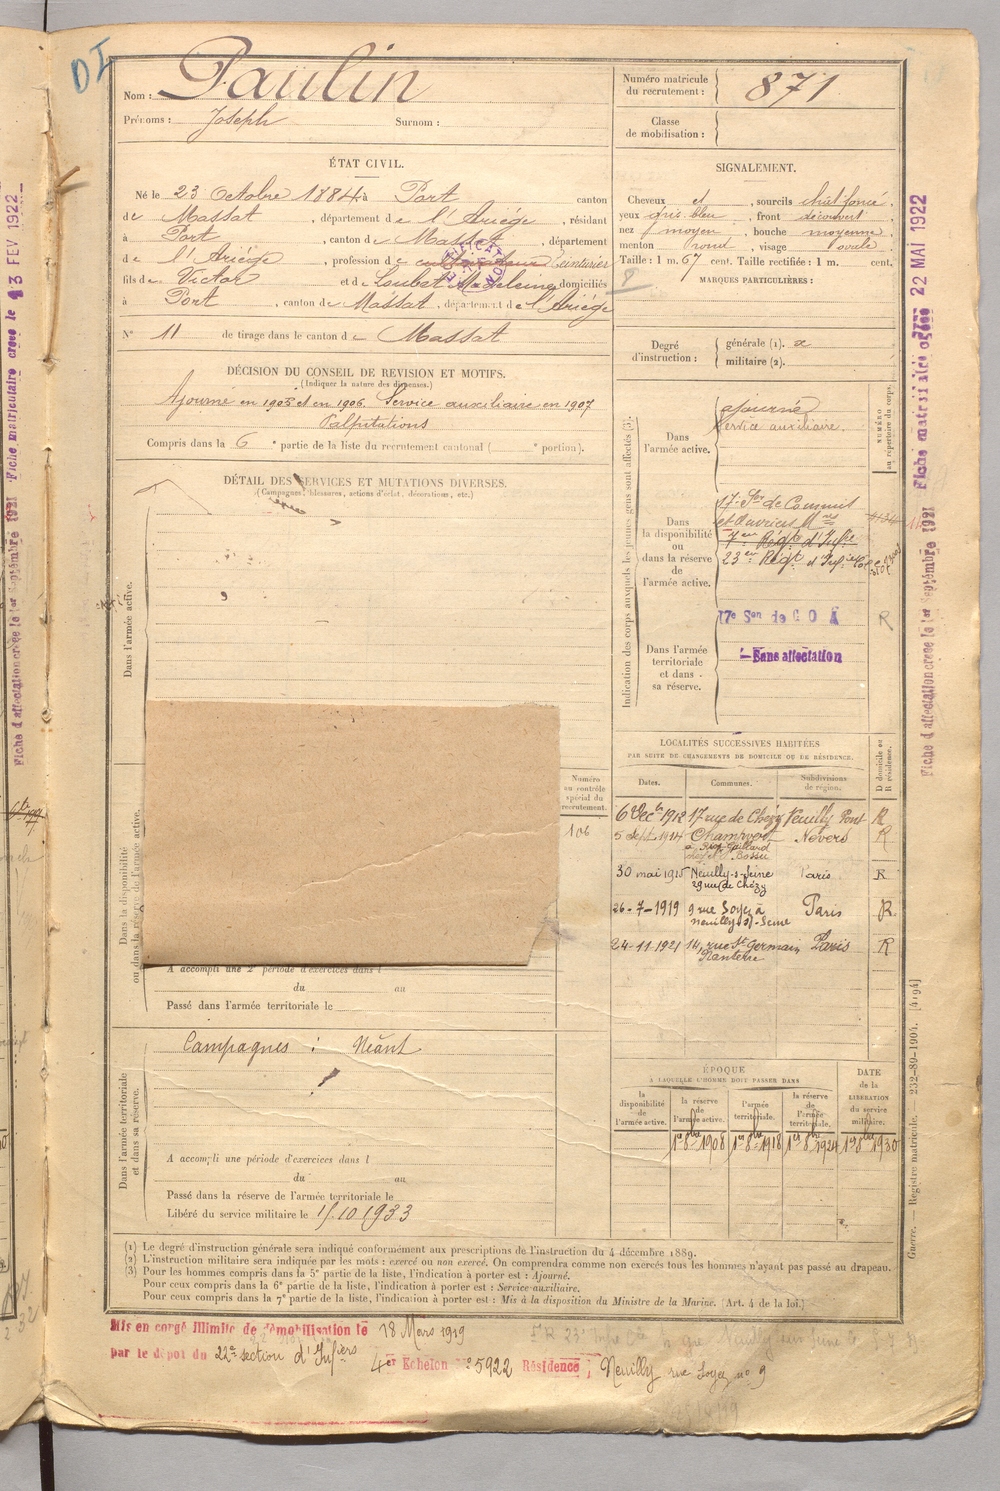 DI
Nom : Paulin
Prénoms : Joseph Surnom :
Numéro matricule du recrutement : 871
Classe de mobilisation :
ÉTAT CIVIL.
Né le 23 Octobre 1884 à Port canton
de Massat, département de l'Ariège, résidant
à Port, canton de Massat, département
de l'Ariège, profession de cultivateur Teinturier
fils de Victor et de Loubet Madeleine domiciliés
à Port, canton de Massat, département de l'Ariège
N° 11 de tirage dans le canton de Massat
SIGNALEMENT.
Cheveux et, sourcils chat foncé
yeux gris bleu, front découvert
nez moyen, bouche moyenne
menton rond, visage ovale
Taille : 1 m. 67 cent. Taille rectifiée : 1 m. cent.
MARQUES PARTICULIÈRES :
Degré d'instruction : générale (1). 2
militaire (2).
DÉCISION DU CONSEIL DE REVISION ET MOTIFS.
(Indiquer la nature des dispenses.)
Ajourné en 1905 et en 1906. Service auxiliaire en 1907
Palpitations
Compris dans la 6e partie de la liste du recrutement cantonal ( e portion).
DÉTAIL DES SERVICES ET MUTATIONS DIVERSES.
(Campagnes, blessures, actions d'éclat, décorations, etc.)
Dans l'armée active.
Dans la disponibilité ou dans la réserve de l'armée active.
Numéro au contrôle spécial du recrutement.
106
A accompli une 2e période d'exercices dans l
du au
Passé dans l'armée territoriale le
Dans l'armée territoriale et dans sa réserve.
Campagnes : Néant
A accompli une période d'exercices dans l
du au
Passé dans la réserve de l'armée territoriale le
Libéré du service militaire le 15.10.1933
Indication des corps auxquels les jeunes gens sont affectés (3).
NUMÉRO au répertoire du corps.
Dans l'armée active. ajourné
Service auxiliaire.
Dans la disponibilité ou dans la réserve de l'armée active.
17e Son de Commis
et Ouvriers Mres
7er Régt d'Infie
23er Régt d'Infie Col
17e Son de C O A R
Dans l'armée territoriale et dans sa réserve.
Sans affectation
LOCALITÉS SUCCESSIVES HABITÉES
PAR SUITE DE CHANGEMENTS DE DOMICILE OU DE RÉSIDENCE.
Dates. Communes. Subdivisions de région. D domicile ou R résidence.
6 Dec bre 1912 17 rue de Chézy Neuilly Pont R
5 Sept. 1914 Champvert Nevers R
30 mai 1915 Neuilly-s-Seine Paris R
29 rue de Chézy
26-7-1919 9 rue Soyez à Paris R
Neuilly s/-Seine
24-11-1921 14, rue St Germain Paris R
Nanterre
ÉPOQUE
A LAQUELLE L'HOMME DOIT PASSER DANS
la disponibilité de l'armée active. la réserve de l'armée active. l'armée territoriale. la réserve de l'armée territoriale. DATE de la LIBÉRATION du service militaire.
1er 8bre 1908 1er 8bre 1918 1er 8bre 1924 1er 8bre 1930
(1) Le degré d'instruction générale sera indiqué conformément aux prescriptions de l'instruction du 4 décembre 1889.
(2) L'instruction militaire sera indiquée par les mots : exercé ou non exercé. On comprendra comme non exercés tous les hommes n'ayant pas passé au drapeau.
(3) Pour les hommes compris dans la 5e partie de la liste, l'indication à porter est : Ajourné.
Pour ceux compris dans la 6e partie de la liste, l'indication à porter est : Service auxiliaire.
Pour ceux compris dans la 7e partie de la liste, l'indication à porter est : Mis à la disposition du Ministre de la Marine. (Art. 4 de la loi.)
Mis en congé illimité de démobilisation le 18 Mars 1919
par le dépôt du 22e section d'Infiers 4er Echelon No 5922 Résidence : Neuilly rue Soyez no 9
Guerre. — Registre matricule. — 232-89-1904. [4194]
Fiche d'affectation créée le 1er Septembre 1921 Fiche matriculaire créée le 13 FEV 1922
Fiche d'affectation créée le 1er Septembre 1921 Fiche matriculaire créée 22 MAI 1922